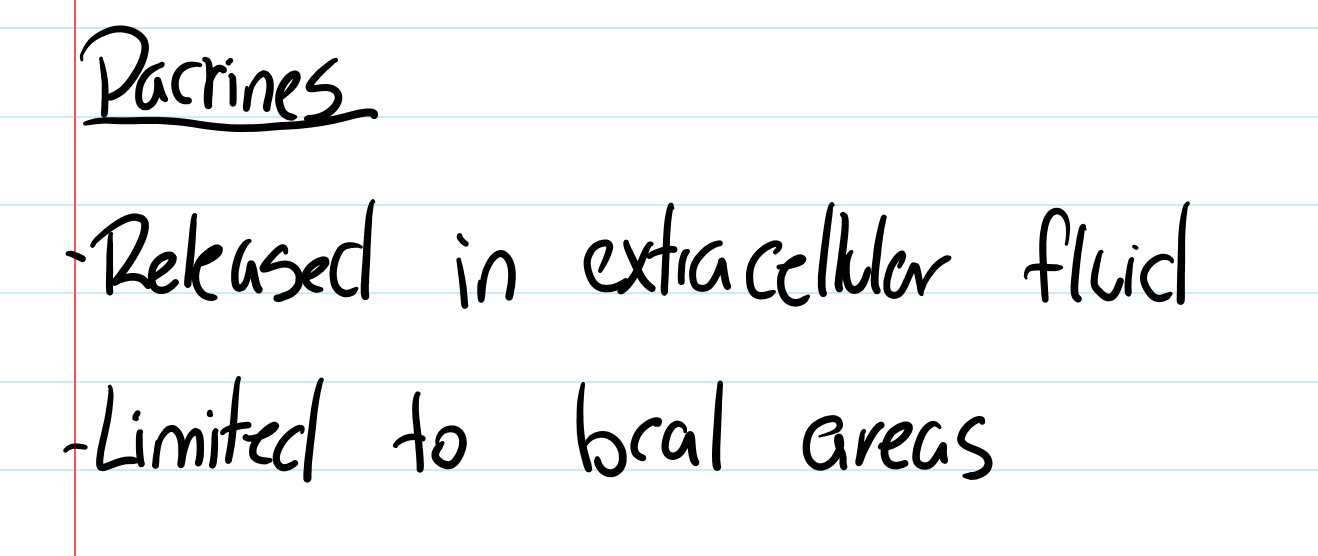 Pacrines
-Released in extracellular fluid
-Limited to local areas